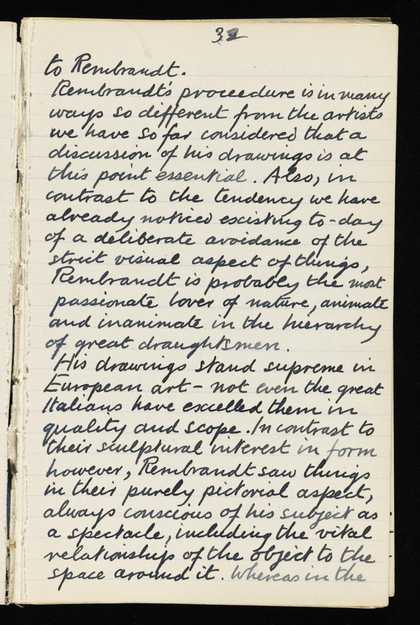 32
to Rembrandt.
Rembrandt's proceedure is in many
ways so different from the artists
we have so far considered that a
discussion of his drawings is at
this point essential. Also, in
contrast to the tendency we have
already noticed existing to-day
of a deliberate avoidance of the
strict visual aspect of things,
Rembrandt is probably the most
passionate lover of nature, animate
and inanimate in the hierarchy
of great draughtsmen.
His drawings stand supreme in
European art - not even the great
Italians have excelled them in
quality and scope. In contrast to
their sculptural interest in form
however, Rembrandt saw things
in their purely pictorial aspect,
always conscious of his subject as
a spectacle, including the vital
relationships of the object to the
space around it. Whereas in the